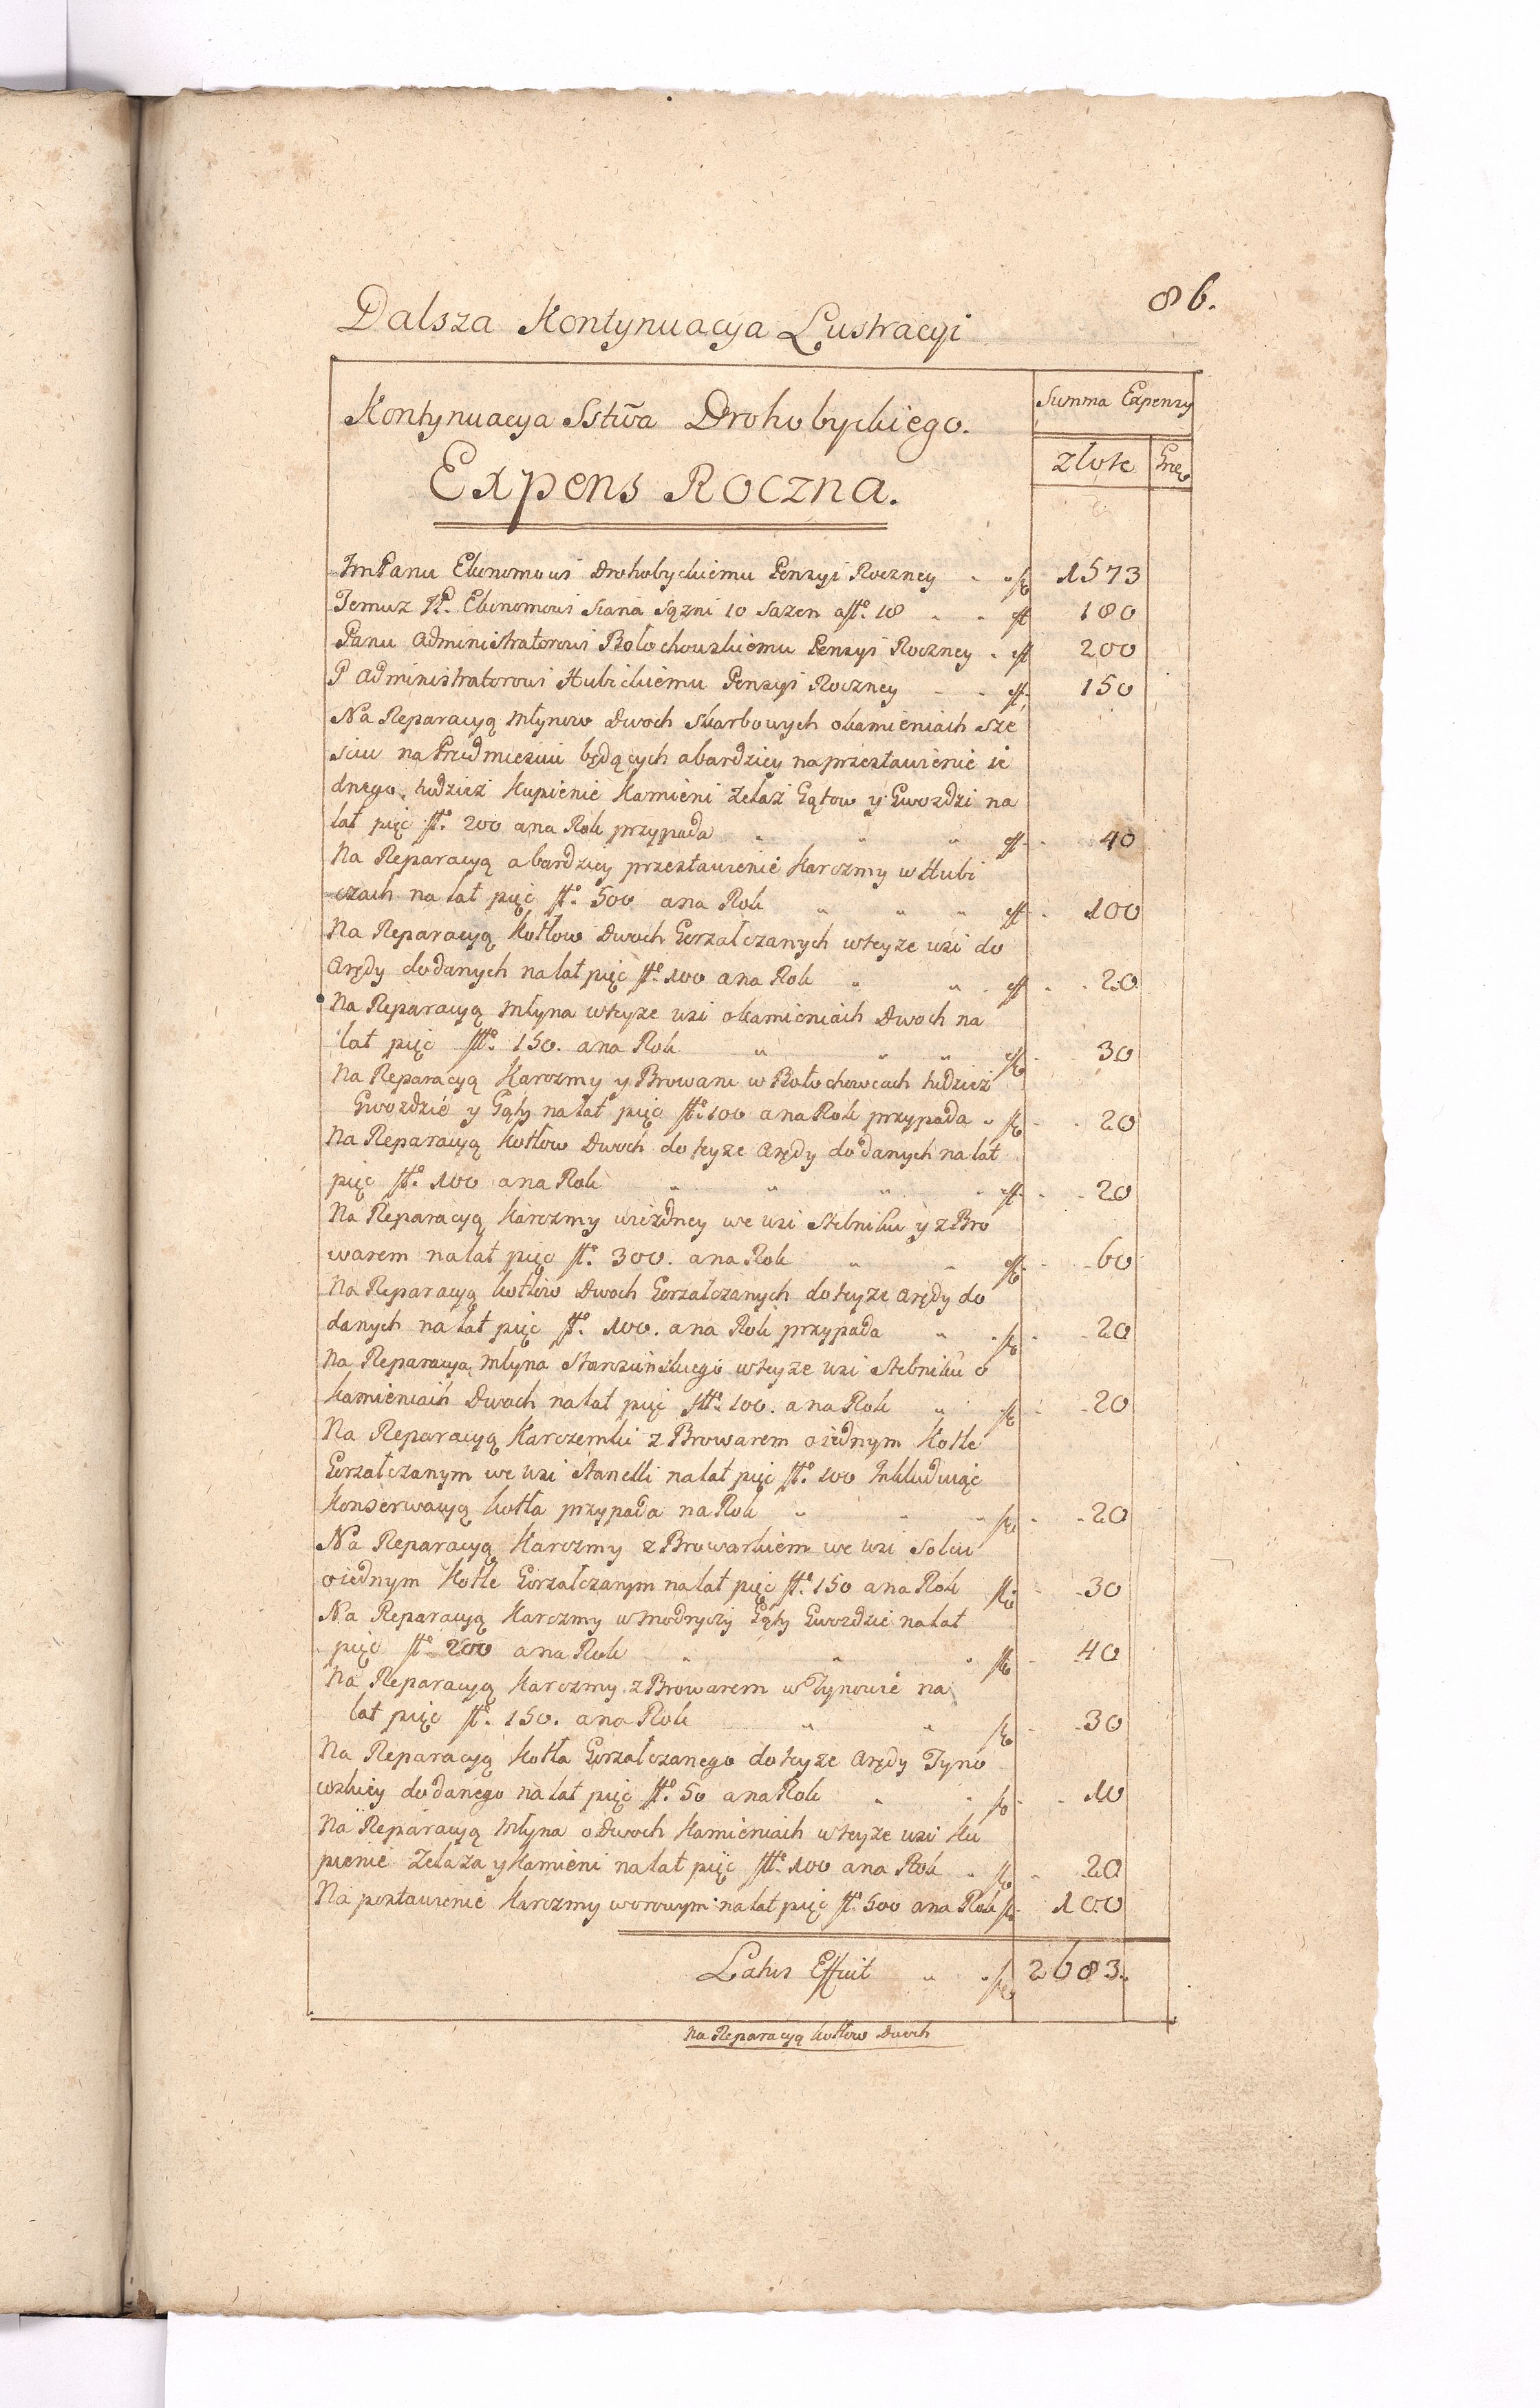 86.
Dalsza Kontynuacya Lustracyi
Kontynuacya Sstwa Drohobyckiego.
Summa Expensy
Expens Roczna.
Złote
ImPanu Ekonomowi Drohobyckiemu Pensyi Roczney 1573
Temuz JP. Ekonomowi siana sązni 10 sazen a ff. 18 180
Panu Administratorowi Bolochowskiemu Pensyi Roczney 200
P Administratorowi Hubickiemu Pensyi Roczney 150
Na Reparacyą Młynow Dwoch skarbowych okamieniach sze
sciu na Przedmiesciu będących abardziey naprzestawienie ie
dnego, tudziesz Kupienie Kamieni Zelaz Gątow y Gwozdzi na
lat pięc ff. 200 ana Rok przypada 40
Na Reparacyą abardziey przestawienie Karczmy w Hubi
czach na lat pięc ff. 500 ana Rok 100
Na Reparacyą Kotłow Dwoch Gorzałczanych wteyze wsi do
Arędy dodanych nalat pięc ff. 100 ana Rok 20
Na Reparacyą Młyna wteyze wsi okamieniach Dwoch na
lat pięc ff. 150. ana Rok 30
Na Reparacyą Karczmy y Browaru w Bołochowcach tudziesz
Gwozdzie y Gąty nalat pięc ff. 100 ana Rok przypada 20
Na Reparacyą Kotłow Dwoch do teyze Arędy dodanych nalat
pięc ff. 100 ana Rok 20
Na Reparacyą Karczmy wiezdney we wsi Stebniku y z Bro
warem nalat pięc ff. 300. ana Rok 60
Na Reparacyą kotłow Dwoch Gorzałczanych do teyze Arędy do
danych nalat pięc ff. 100. ana Rok przypada 20
Na Reparacyą Młyna wteyze wsi Stebniku o
Kamieniach Dwoch nalat pięc ff. 100. ana Rok 20
Na Reparacyą Karczemki z Browarem oiednym Kotle
Gorzałczanym we wsi Stanelli nalat pięc ff. 100 Inkluduiąc
Konserwacyą kotła przypada na Rok 20
Na Reparacyą Karczmy z Browarkiem we wsi Solcu
oiednym Kotle Gorzałczanym nalat pięc ff. 150 ana Rok 30
Na Reparacyą Karczmy w Modryczy Gąty Gwozdzie nalat
pięc ff. 200 ana Rok 40
Na Reparacyą Karczmy z Browarem w Tynowie na
lat pięc ff. 150. ana Rok 30
Na Reparacyą Kotła Gorzałczanego do teyze Arędy Tyno
wskiey dodanego nalat pięc ff. 50 ana Rok 10
Na Reparacyą Młyna o Dwoch Kamieniach wteyze wsi Ku
pienie Zelaza y Kamieni nalat pięc ff. 100 ana Rok 20
Na postawienie Karczmy worowym nalat pięc ff. 500 ana Rok 100
Latus Effuit 2683.
Na Reparacyą kotłow Dwoch